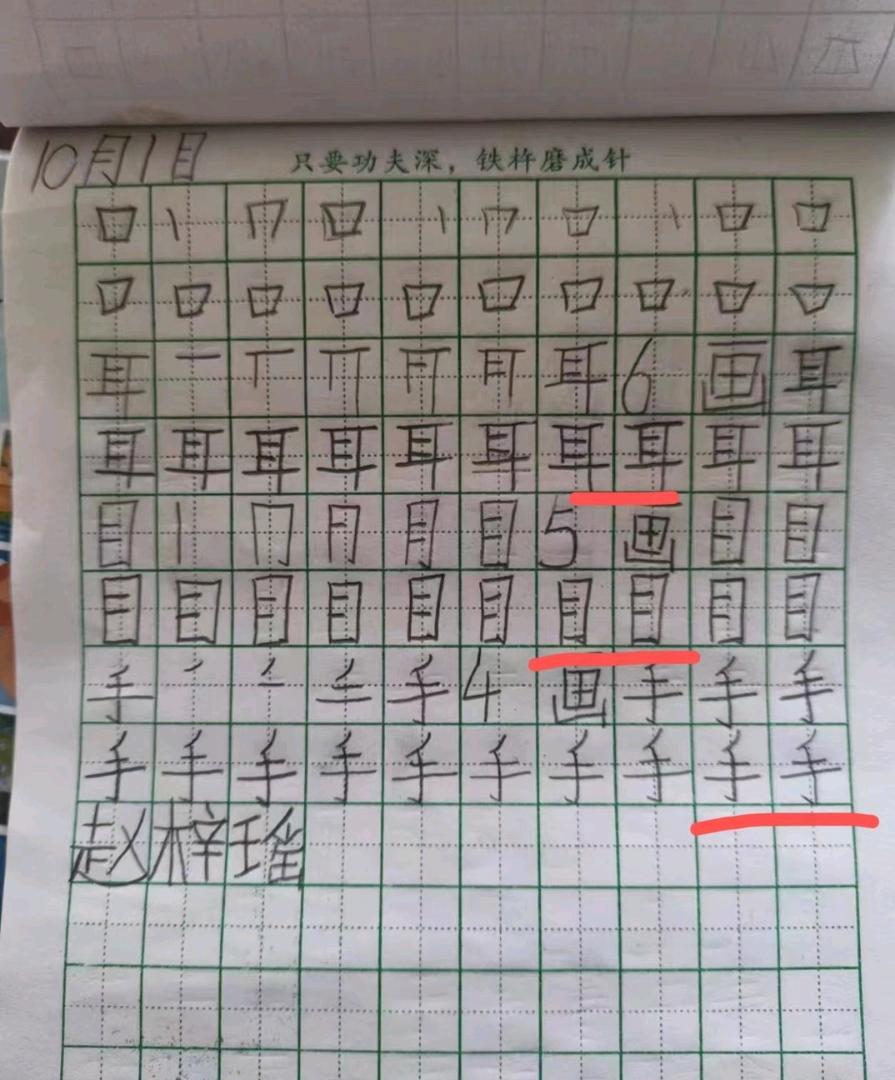 10月1日
只要功夫深，铁杵磨成针
口丨𠃍口丨𠃍口丨口口
口口口口口口口口口口
耳一丅丌耳6画耳
耳耳耳耳耳耳耳耳耳耳
目丨冂月目5画目目
目目目目目目目目目目
手丿二三手4画手手手
手手手手手手手手手手
赵梓瑶